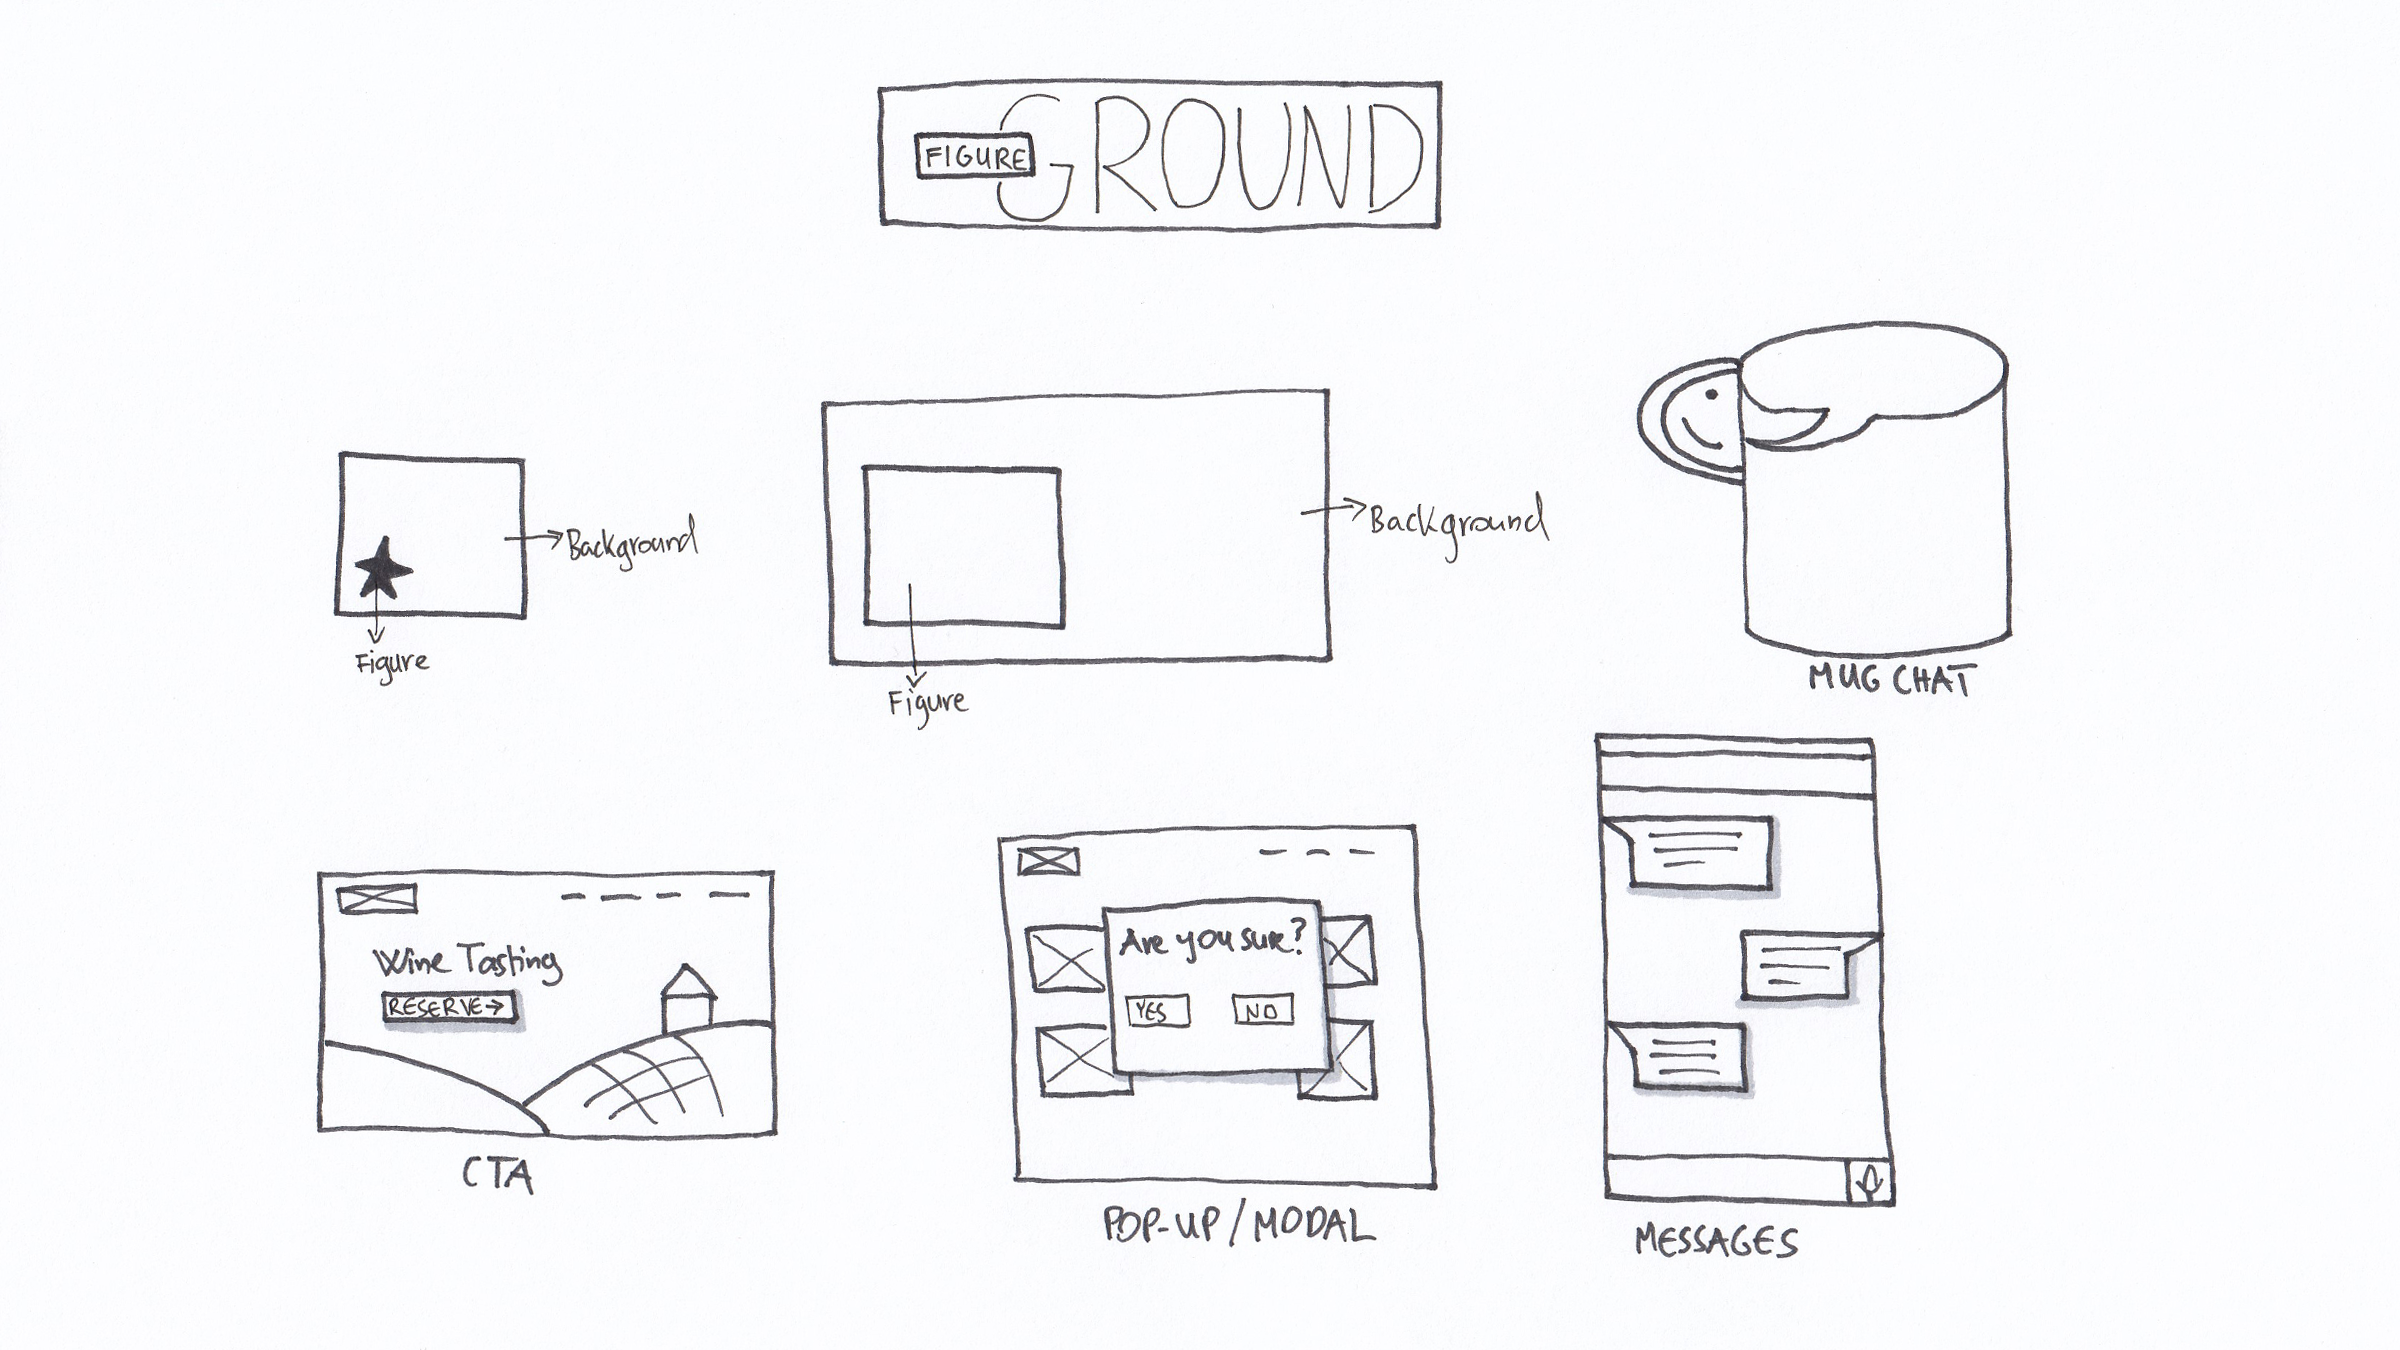 FIGURE
GROUND
Background
Figure
Background
Figure
MUG CHAT
Wine Tasting
RESERVE→
CTA
Are you sure?
YES
NO
POP-UP/MODAL
MESSAGES